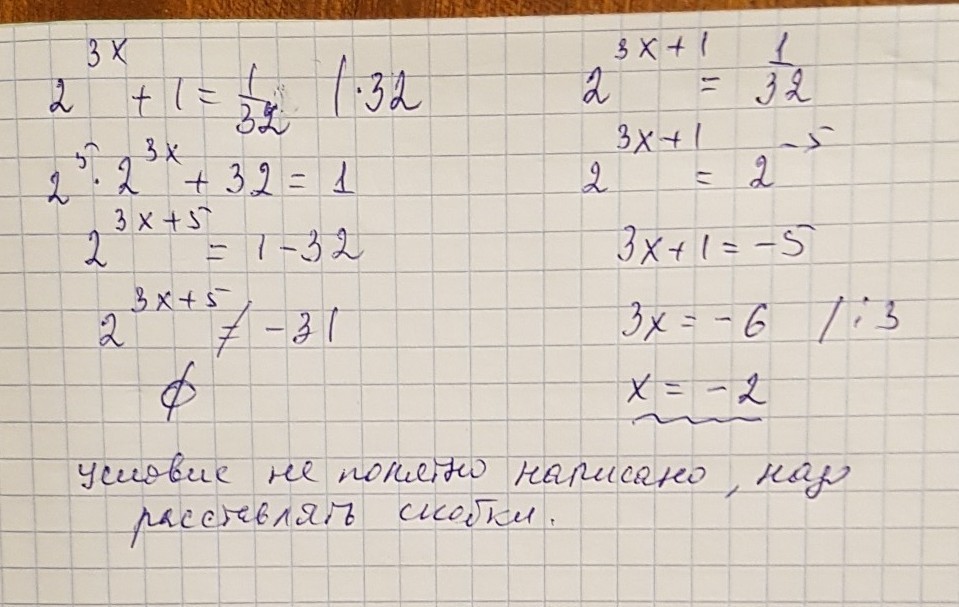 2^{3x} + 1 = 1/32 | · 32
2^5 · 2^{3x} + 32 = 1
2^{3x+5} = 1 - 32
2^{3x+5} ≠ -31
∅
2^{3x+1} = 1/32
2^{3x+1} = 2^{-5}
3x + 1 = -5
3x = -6 | : 3
x = -2
условие не понятно написано, надо
расставлять скобки.